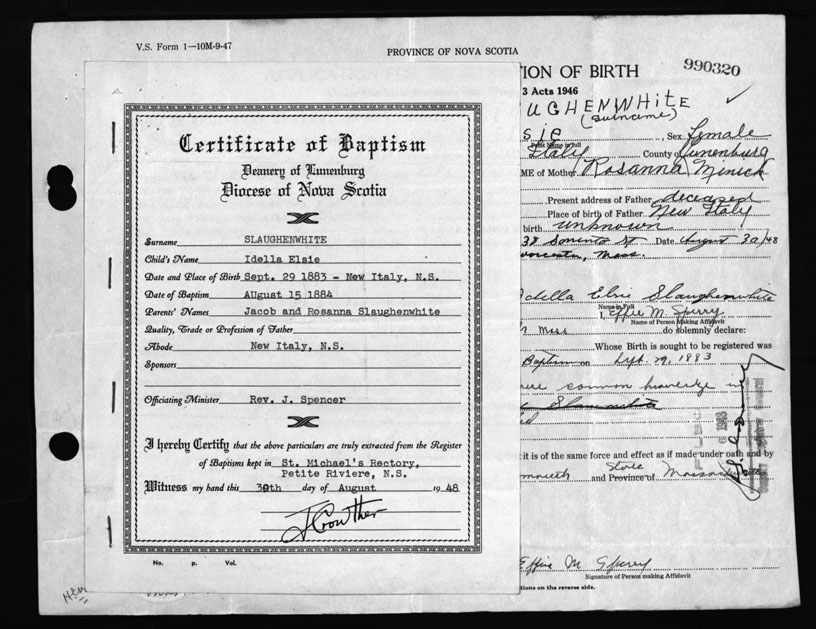 V.S. Form 1—10M-9-47
PROVINCE OF NOVA SCOTIA
990320
Certificate of Baptism
Deanery of Lunenburg
Diocese of Nova Scotia
Surname SLAUGHENWHITE
Child's Name Idella Elsie
Date and Place of Birth Sept. 29 1883 - New Italy, N.S.
Date of Baptism AUgust 15 1884
Parents' Names Jacob and Rosanna Slaughenwhite
Quality, Trade or Profession of Father
Abode New Italy, N.S.
Sponsors
Officiating Minister Rev. J. Spencer
I hereby Certify that the above particulars are truly extracted from the Register
of Baptisms kept in St. Michael's Rectory,
Petite Riviere, N.S.
Witness my hand this 30th day of August 1948
J Crowther
No. P. Vol.
TION OF BIRTH
3 Acts 1946
UGHENWHITE
(surname)
sie, Sex female
Print Name in full
Italy County of Lunenburg
ME of Mother Rosanna Minick
Present address of Father deceased
Place of birth of Father New Italy
birth unknown
38 Sorrento St. Date August 30/48
Worcester, Mass.
Idella Elsie Slaughenwhite
Name in Full
I, Effie M. Sperry
Name of Person Making Affidavit
Mass do solemnly declare:
Whose Birth is sought to be registered was
Baptism on Sept. 29, 1883
were common knowledge in
Slaughenwhite
it is of the same force and effect as if made under oath and by
State
and Province of Massachusetts
Effie M Sperry
Signature of Person making Affidavit
tions on the reverse side.